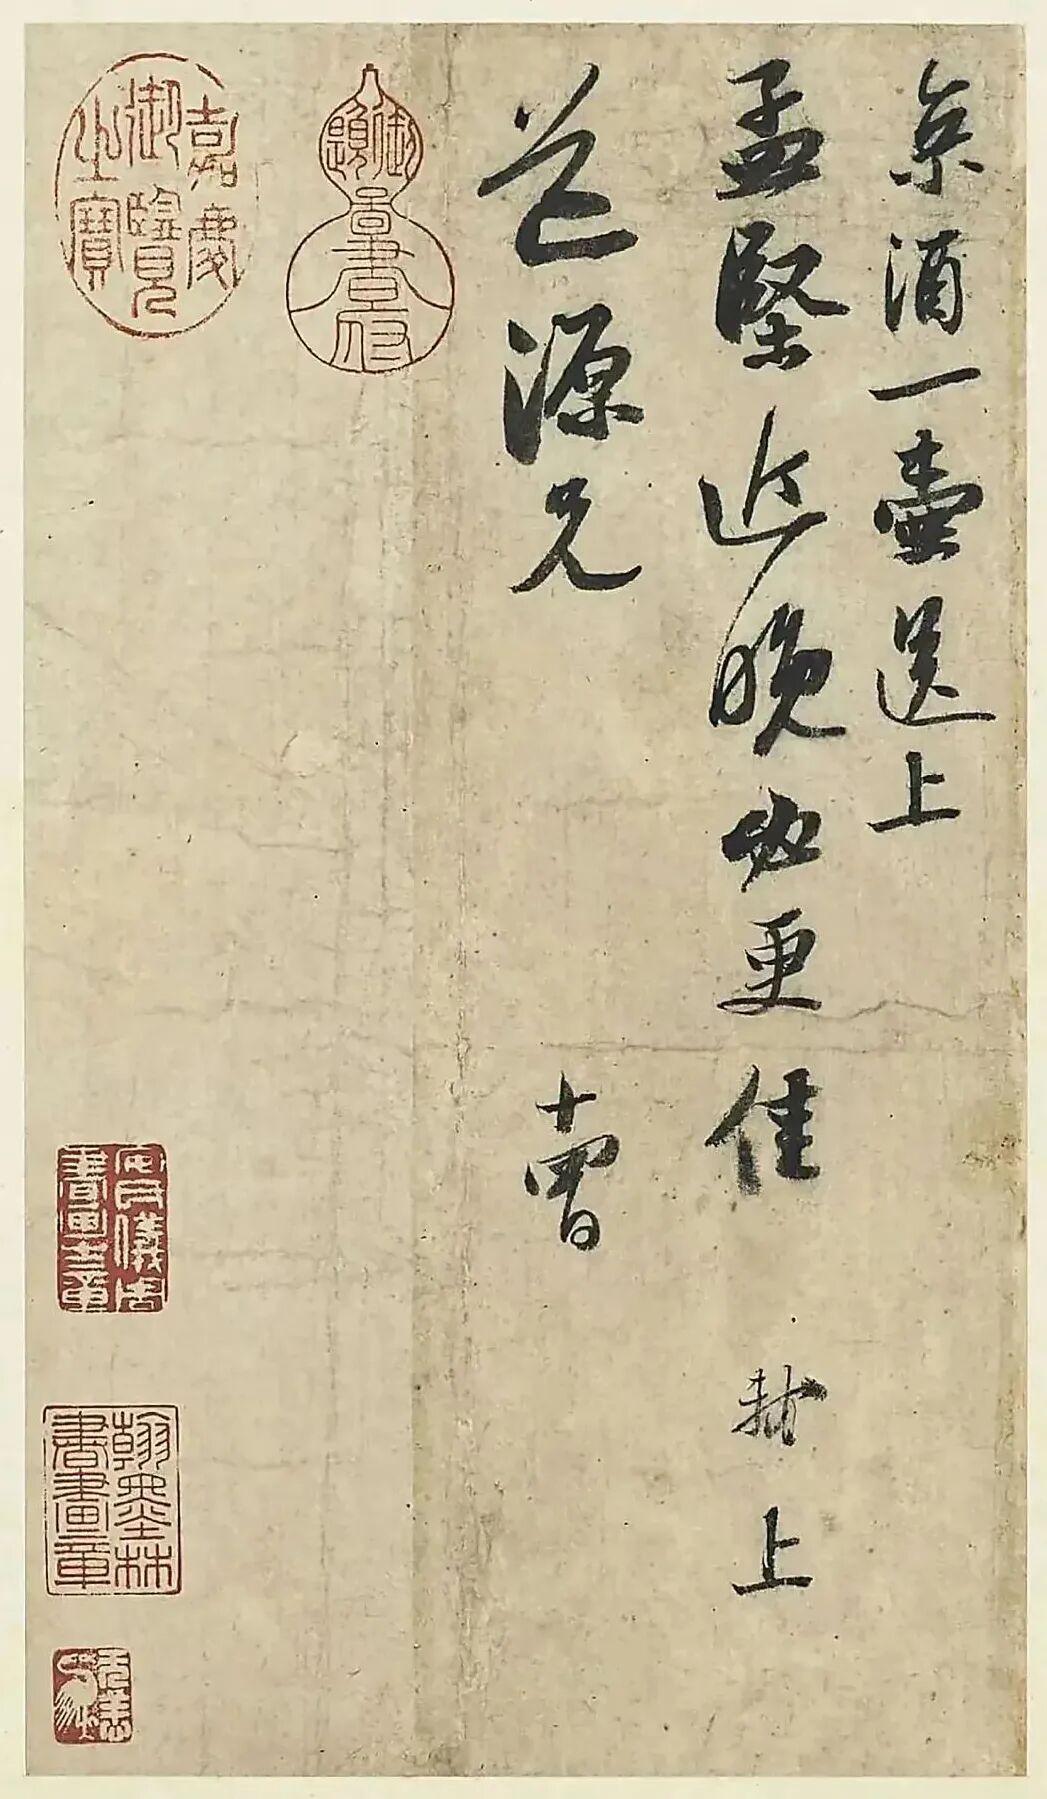 京酒一壺送上
孟堅近晚必更佳 黻上
道源兄
十曹
御題
畫書府
嘉慶
御覽
之寶
安氏儀周
書畫之章
翰墨林
書畫章